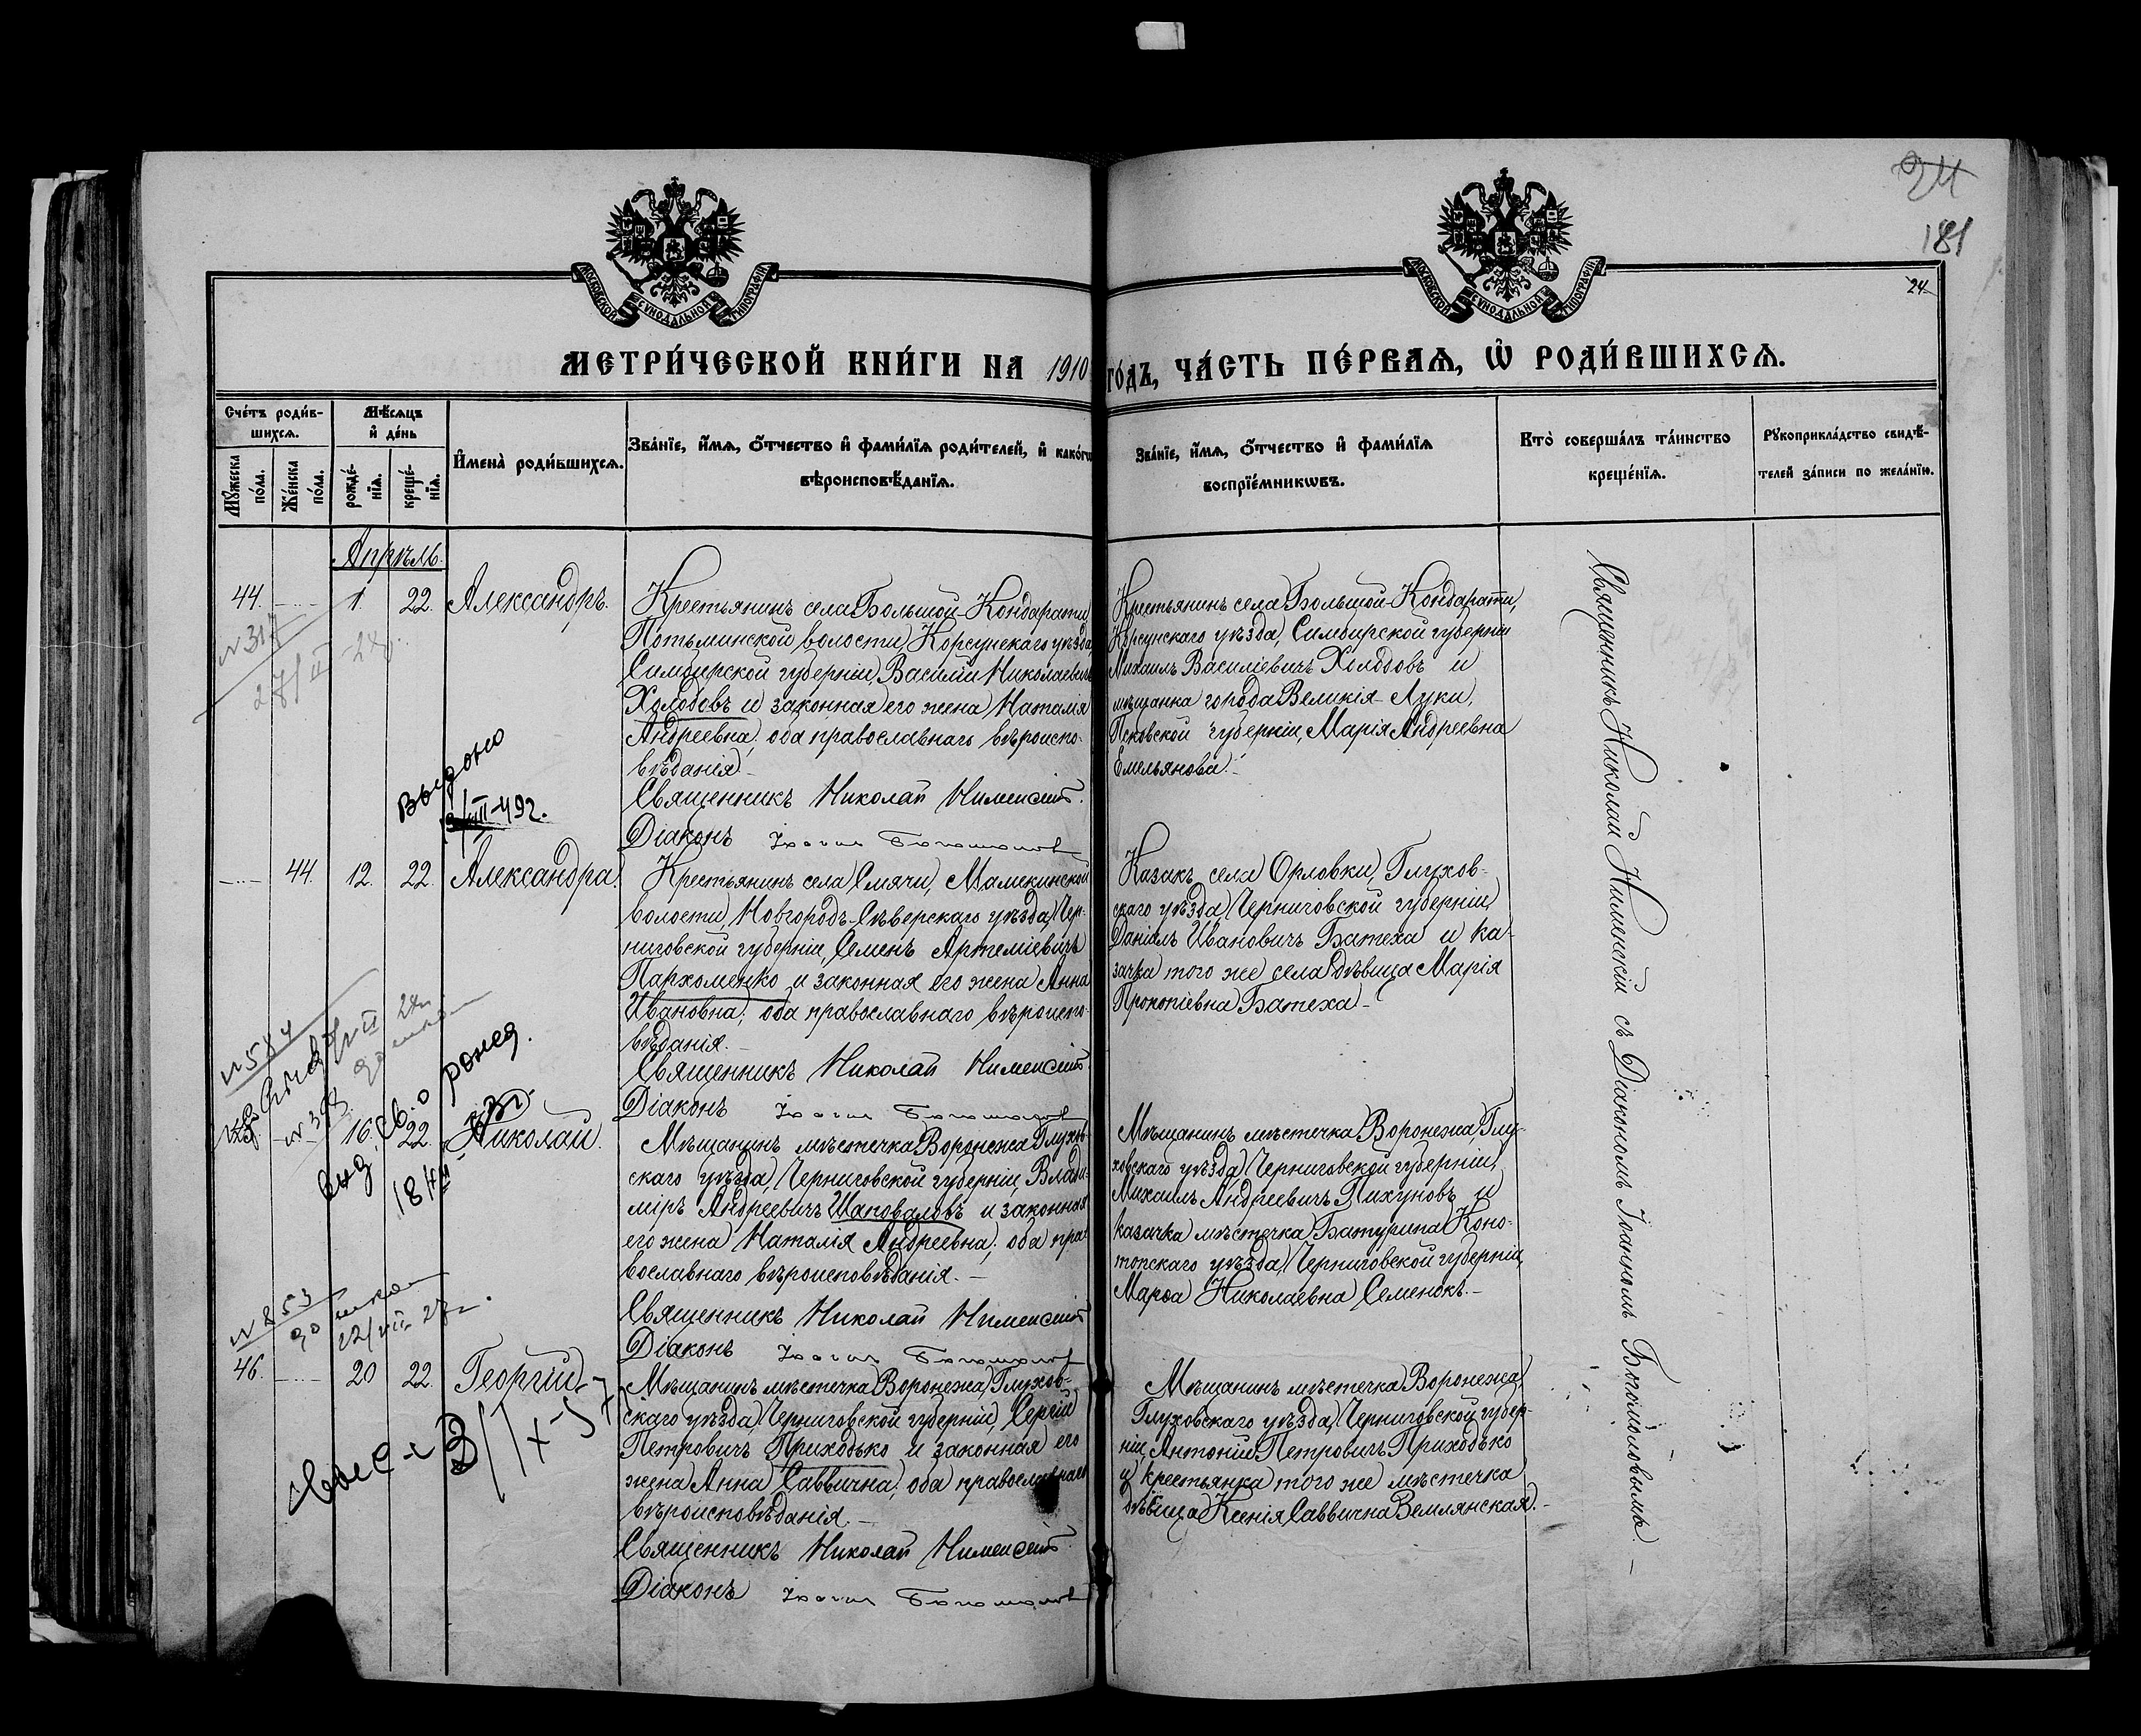 24
181
24
МОСКОВСКОЙ СѴНОДАЛЬНОЙ ТИПОГРАФІИ
МОСКОВСКОЙ СѴНОДАЛЬНОЙ ТИПОГРАФІИ
МЕТРИ́ЧЕСКОЙ КНИ́ГИ НА 1910 ГО́ДЪ, ЧА́СТЬ ПЕ́РВАѦ, Ѽ РОДИ́ВШИХСѦ.
Сче́тъ роди́в-
шихсѧ.
Мѣ́сѧцъ
и҆ де́нь
Мꙋ́жеска
по́ла.
Же́нска
по́ла.
рожде́-
нїѧ.
креще́-
нїѧ.
И҆мена̀ роди́вшихсѧ.
Зва́нїе, и҆́мѧ, ѻ҆́тчество и҆ фами́лїѧ роди́телей, и҆ како́гѡ
вѣроисповѣ́данїѧ.
Зва́нїе, и҆́мѧ, ѻ҆́тчество и҆ фами́лїѧ
воспрїе́мникѡвъ.
Кто̀ соверша́лъ та́инство
креще́нїѧ.
Рꙋкоприкла́дство свидѣ́-
телей за́писи по жела́нїю.
Апрѣль.
44. 1. 22. Александръ.
Крестьянинъ села Большой Кондарати,
Потьминской волости, Корсунскаго уѣзда
Симбирской губерніи, Василій Николаевичъ
Холодовъ и законная его жена Наталія
Андреевна, оба православнаго вѣроиспо-
вѣданія.
Священникъ Николай Нименскій.
Діаконъ Іоаннъ Богомоловъ
Крестьянинъ села Большой Кондарати,
Корсунскаго уѣзда, Симбирской губерніи
Михаилъ Василіевичъ Холодовъ и
мѣщанка города Великія Луки,
Псковской губерніи, Марія Андреевна
Емельянова.
44. 12. 22. Александра.
Крестьянинъ села Смячи, Мамекинской
волости, Новгородъ-Сѣверскаго уѣзда, Чер-
ниговской губерніи, Семенъ Артеміевичъ
Пархоменко и законная его жена Анна
Ивановна; оба православнаго вѣроиспо-
вѣданія.
Священникъ Николай Нименскій
Діаконъ Іоаннъ Богомоловъ
Казакъ села Орловки, Глухов-
скаго уѣзда, Черниговской губерніи,
Даніилъ Ивановичъ Батеха и ка-
зачка того же села дѣвица Марія
Прокопіевна Батеха.
16. 22. Николай.
Мѣщанинъ мѣстечка Воронежа Глухов-
скаго уѣзда, Черниговской губерніи, Влади-
міръ Андреевичъ Шаповаловъ и законная
его жена Наталія Андреевна; оба пра-
вославнаго вѣроисповѣданія.
Священникъ Николай Нименскій
Діаконъ Іоаннъ Богомоловъ
Мѣщанинъ мѣстечка Воронежа, Глу-
ховскаго уѣзда, Черниговской губерніи,
Михаилъ Андреевичъ Пихуновъ и
казачка мѣстечка Батурина Коно-
топскаго уѣзда, Черниговской губерніи,
Марѳа Николаевна Семенокъ.
46. 20 22. Георгій.
Мѣщанинъ мѣстечка Воронежа, Глухов-
скаго уѣзда, Черниговской губерніи, Сергій
Петровичъ Приходько и законная его
жена Анна Саввична; оба православнаго
вѣроисповѣданія.
Священникъ Николай Нименскій.
Діаконъ Іоаннъ Богомоловъ
Мѣщанинъ мѣстечка Воронежа,
Глуховскаго уѣзда, Черниговской губер-
ніи, Антоній Петровичъ Приходько
и крестьянка того же мѣстечка
дѣвица Ксенія Саввична Землянская.
Священникъ Николай Нименскій съ Діакономъ Іоанномъ Богомоловымъ.